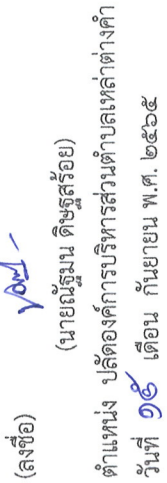 (ลงชื่อ)
(นายณัฐมน ดิษฐสร้อย)
ตำแหน่ง ปลัดองค์การบริหารส่วนตำบลเหล่าต่างคำ
วันที่ ๑๕ เดือน กันยายน พ.ศ. ๒๕๖๕